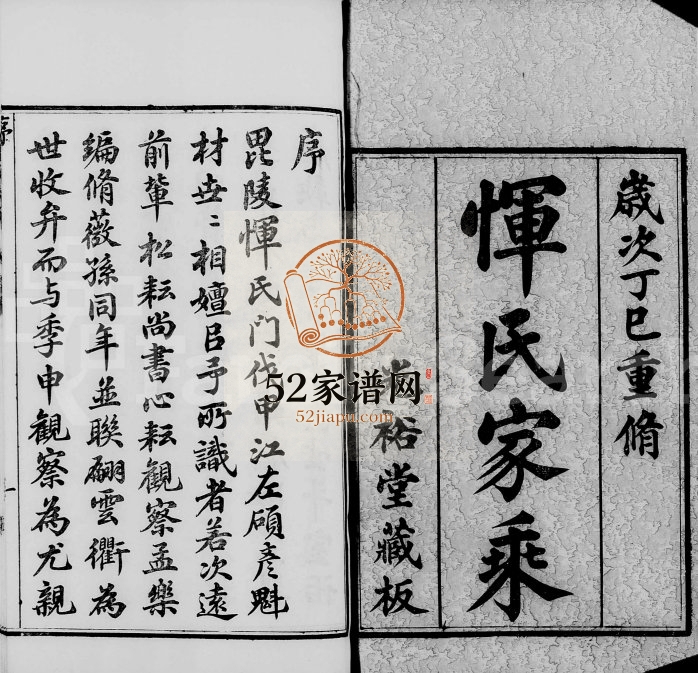 歲次丁巳重脩
惲氏家乘
裕堂藏板
序
毘陵惲氏門伐甲江左碩彥魁
材世〻相嬗呂予所識者若次遠
前輩松耘尚書心耘觀察孟樂
編脩薇孫同年並聯翩雲衢為
世收弁而与季申觀察為尤親
序
一
52家谱网
52jiapu.com